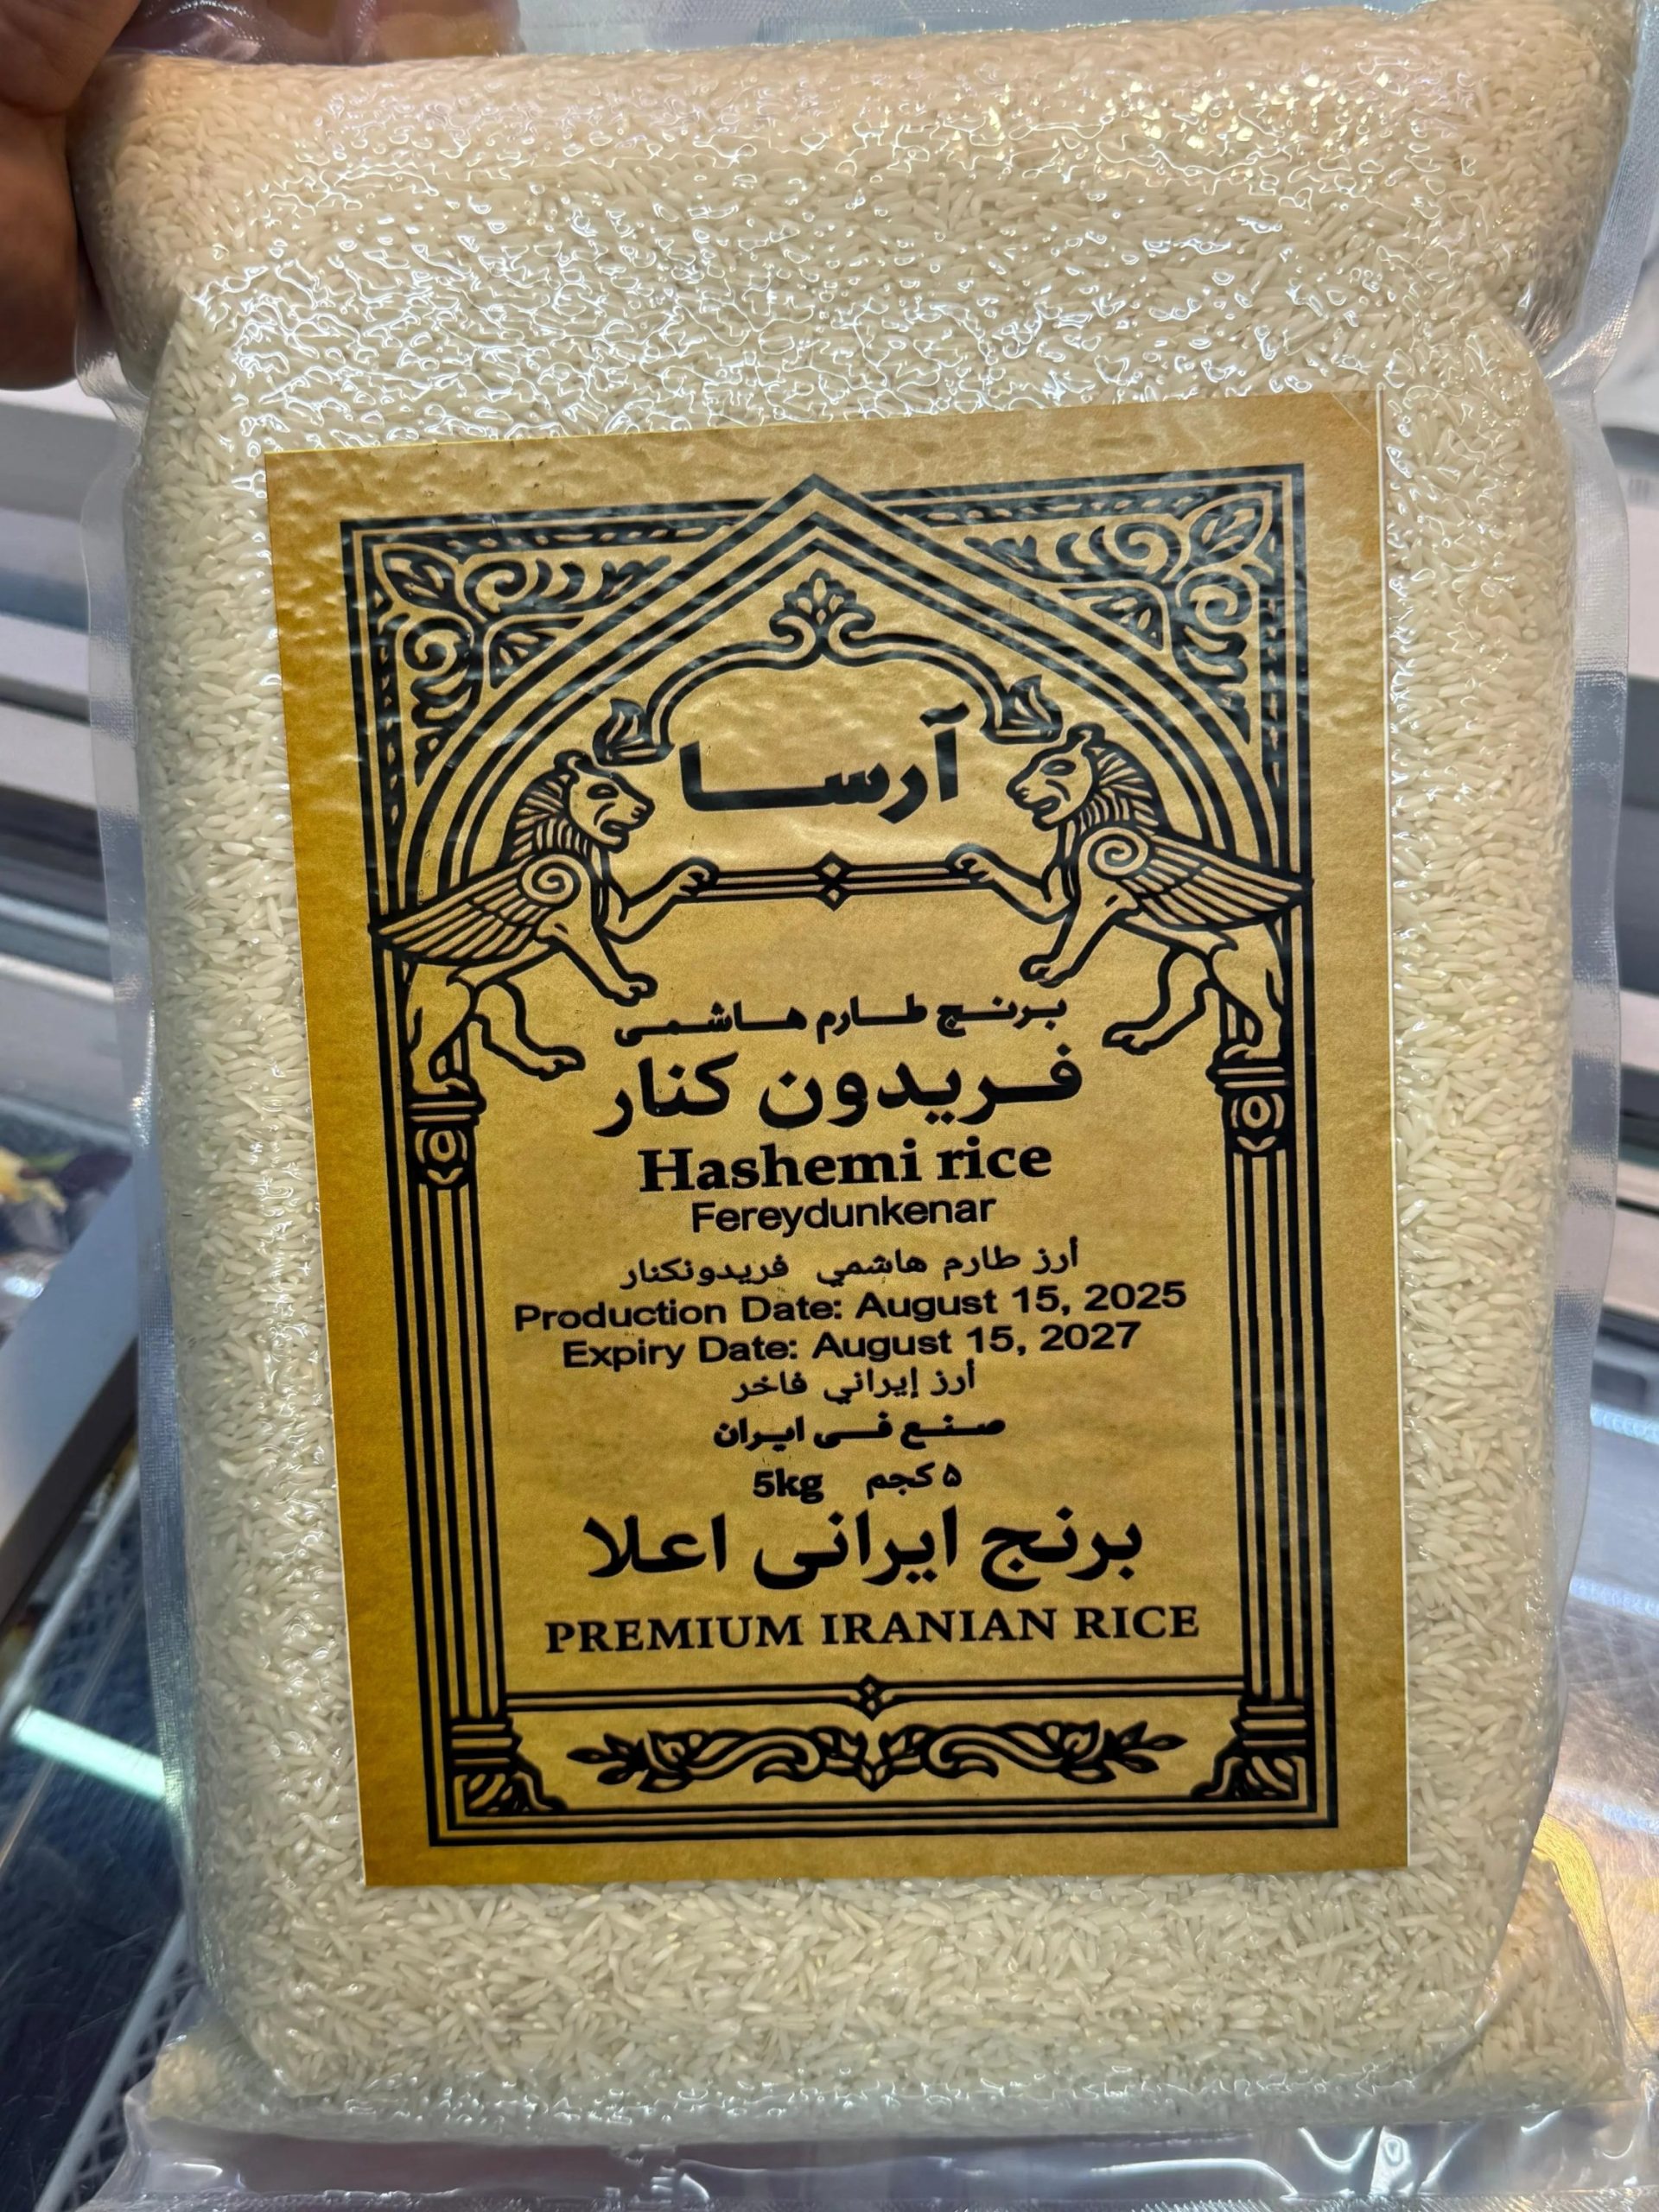 آرسا
برنج طارم هاشمی
فریدون کنار
Hashemi rice
Fereydunkenar
أرز طارم هاشمي فريدونكنار
Production Date: August 15, 2025
Expiry Date: August 15, 2027
أرز إيراني فاخر
صنع فی ایران
5kg ۵ کجم
برنج ایرانی اعلا
PREMIUM IRANIAN RICE